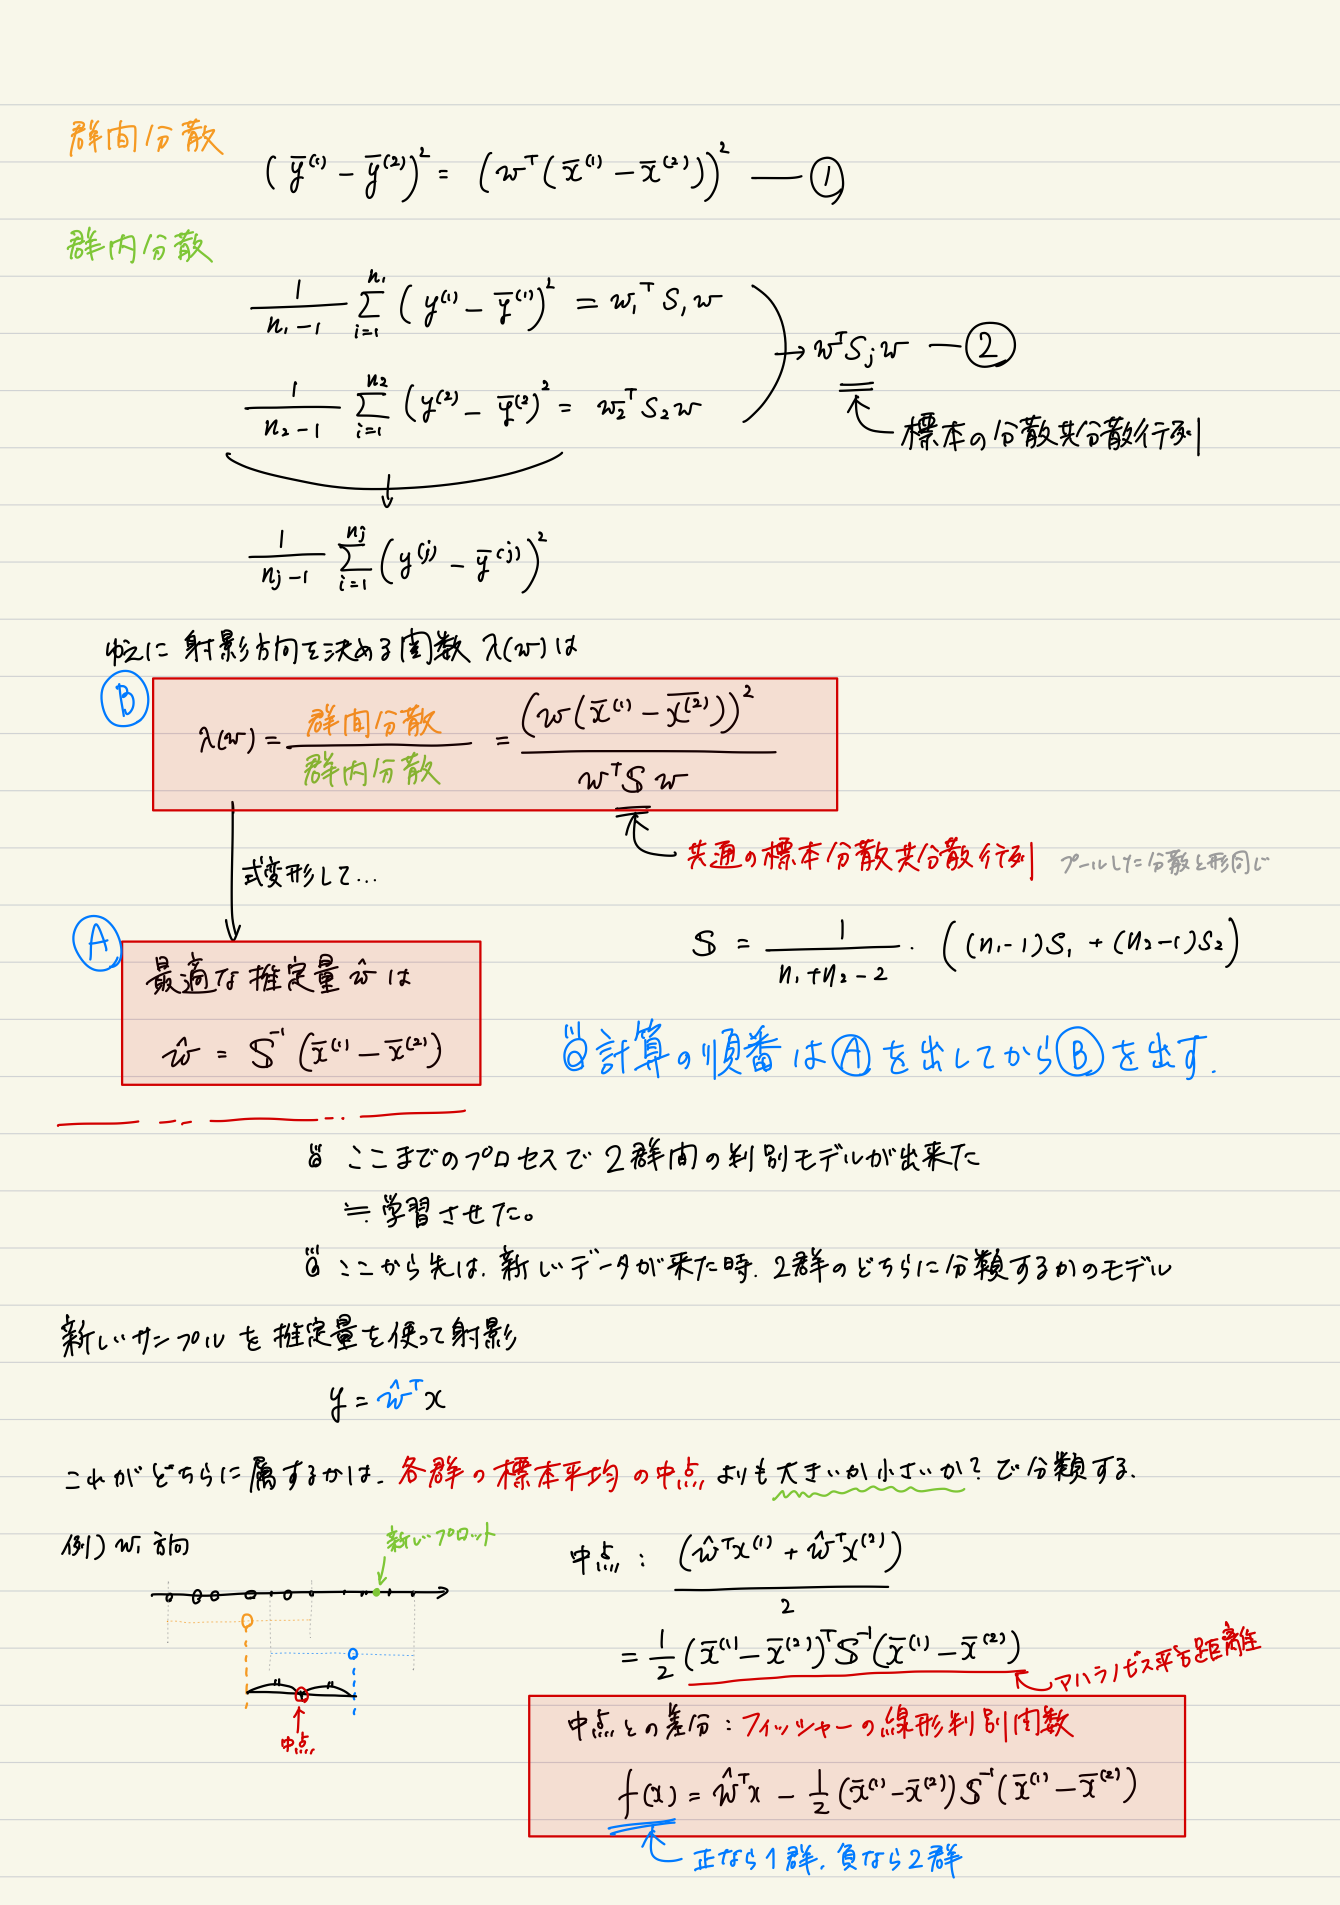 群間分散
(ȳ⁽¹⁾ − ȳ⁽²⁾)² = (wᵀ(x̄⁽¹⁾ − x̄⁽²⁾))² ― ①
群内分散
1/(n₁−1) Σ_{i=1}^{n₁} (y⁽¹⁾ − ȳ⁽¹⁾)² = w₁ᵀS₁w
1/(n₂−1) Σ_{i=1}^{n₂} (y⁽²⁾ − ȳ⁽²⁾)² = w₂ᵀS₂w
→ wᵀSⱼw ― ②
標本の分散共分散行列
1/(nj−1) Σ_{i=1}^{nj} (y⁽ʲ⁾ − ȳ⁽ʲ⁾)²
ゆえに 射影方向を決める関数 λ(w)は
Ⓑ
λ(w) = 群間分散/群内分散 = (w(x̄⁽¹⁾ − x̄⁽²⁾))² / wᵀSw
共通の標本分散共分散行列 プールした分散と形同じ
式変形して...
S = 1/(n₁+n₂−2) · ((n₁−1)S₁ + (n₂−1)S₂)
Ⓐ
最適な推定量 ŵ は
ŵ = S⁻¹(x̄⁽¹⁾ − x̄⁽²⁾)
計算の順番はⒶを出してからⒷを出す.
ここまでのプロセスで2群間の判別モデルが出来た
≒ 学習させた。
ここから先は、新しいデータが来た時、2群のどちらに分類するかのモデル
新しいサンプルを推定量を使って射影
y = ŵᵀx
これがどちらに属するかは、各群の標本平均の中点よりも大きいか小さいか?で分類する.
例) w₁方向
新しいプロット
中点
中点 : (ŵᵀx⁽¹⁾ + ŵᵀx⁽²⁾)/2
= 1/2 (x̄⁽¹⁾ − x̄⁽²⁾)ᵀS⁻¹(x̄⁽¹⁾ − x̄⁽²⁾)
マハラノビス平方距離
中点との差分 : フィッシャーの線形判別関数
f(x) = ŵᵀx − 1/2 (x̄⁽¹⁾ − x̄⁽²⁾)S⁻¹(x̄⁽¹⁾ − x̄⁽²⁾)
正なら1群、負なら2群